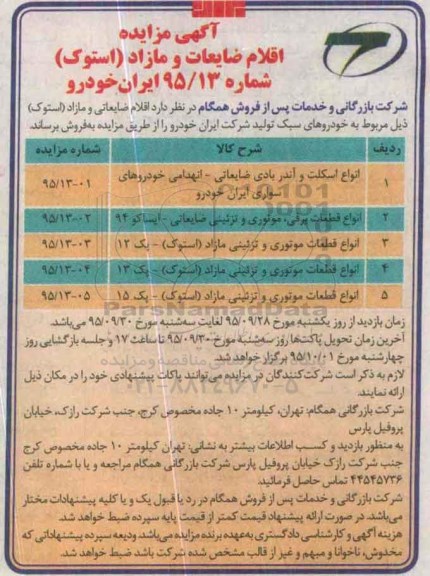 آگهی مزایده
اقلام ضایعات و مازاد (استوک)
شماره ۹۵/۱۳ ایران‌خودرو
شرکت بازرگانی و خدمات پس از فروش همگام در نظر دارد اقلام ضایعاتی و مازاد (استوک)
ذیل مربوط به خودروهای سبک تولید شرکت ایران خودرو را از طریق مزایده به‌فروش برساند.
ردیف شرح کالا شماره مزایده
۱ انواع اسکلت و آندر بادی ضایعاتی - انهدامی خودروهای سواری ایران خودرو ۹۵/۱۳-۰۱
۲ انواع قطعات برقی، موتوری و تزئینی ضایعاتی - ایساکو ۹۴ ۹۵/۱۳-۰۲
۳ انواع قطعات موتوری و تزئینی مازاد (استوک) - پک ۱۲ ۹۵/۱۳-۰۳
۴ انواع قطعات موتوری و تزئینی مازاد (استوک) - پک ۱۳ ۹۵/۱۳-۰۴
۵ انواع قطعات موتوری و تزئینی مازاد (استوک) - پک ۱۵ ۹۵/۱۳-۰۵
ParsNamadData
زمان بازدید از روز یکشنبه مورخ ۹۵/۰۹/۲۸ لغایت سه‌شنبه مورخ ۹۵/۰۹/۳۰ می‌باشد.
آخرین زمان تحویل پاکت‌ها روز سه‌شنبه مورخ ۹۵/۰۹/۳۰ تا ساعت ۱۷ و جلسه بازگشایی روز
چهارشنبه مورخ ۹۵/۱۰/۰۱ برگزار خواهد شد.
لازم به ذکر است شرکت‌کنندگان در مزایده می‌توانند پاکات پیشنهادی خود را در مکان ذیل
۰۲۱-۸۸۳۴۹۶۷۰-۵
ارائه نمایند.
شرکت بازرگانی همگام: تهران، کیلومتر ۱۰ جاده مخصوص کرج، جنب شرکت رازک، خیابان
پروفیل پارس
به منظور بازدید و کسب اطلاعات بیشتر به نشانی: تهران کیلومتر ۱۰ جاده مخصوص کرج
جنب شرکت رازک خیابان پروفیل پارس شرکت بازرگانی همگام مراجعه و یا با شماره تلفن
۴۴۵۴۵۷۳۶ تماس حاصل فرمائید.
شرکت بازرگانی و خدمات پس از فروش همگام در رد یا قبول یک و یا کلیه پیشنهادات مختار
می‌باشد. در صورت ارائه پیشنهاد قیمت کمتر از قیمت پایه سپرده ضبط خواهد شد.
هزینه آگهی و کارشناسی دادگستری به‌عهده برنده مزایده می‌باشد. ودیعه سپرده پیشنهاداتی که
مخدوش، ناخوانا و مبهم و غیر از قالب مشخص شده شرکت باشد ضبط خواهد شد.